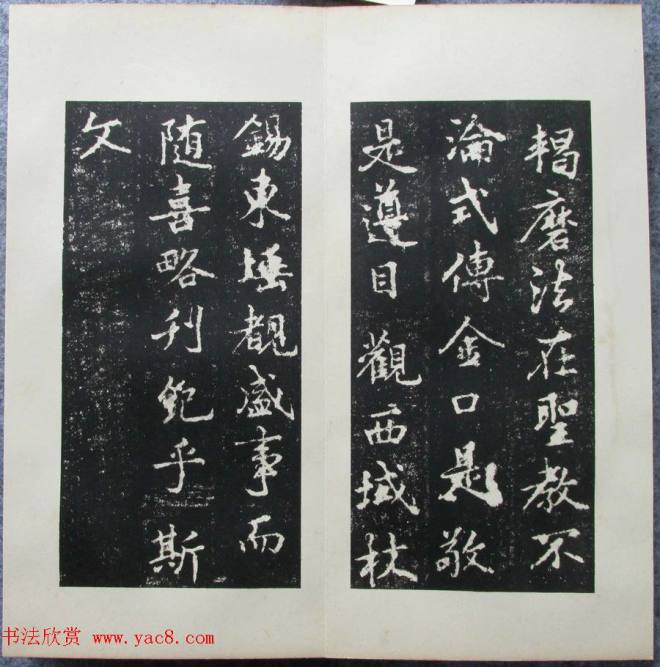 羯磨法在聖教不
淪式傳金口是敬
是遵目觀西域杖
錫東埵覩盛事而
随喜略刊乎斯
文
书法欣赏 www.yac8.com